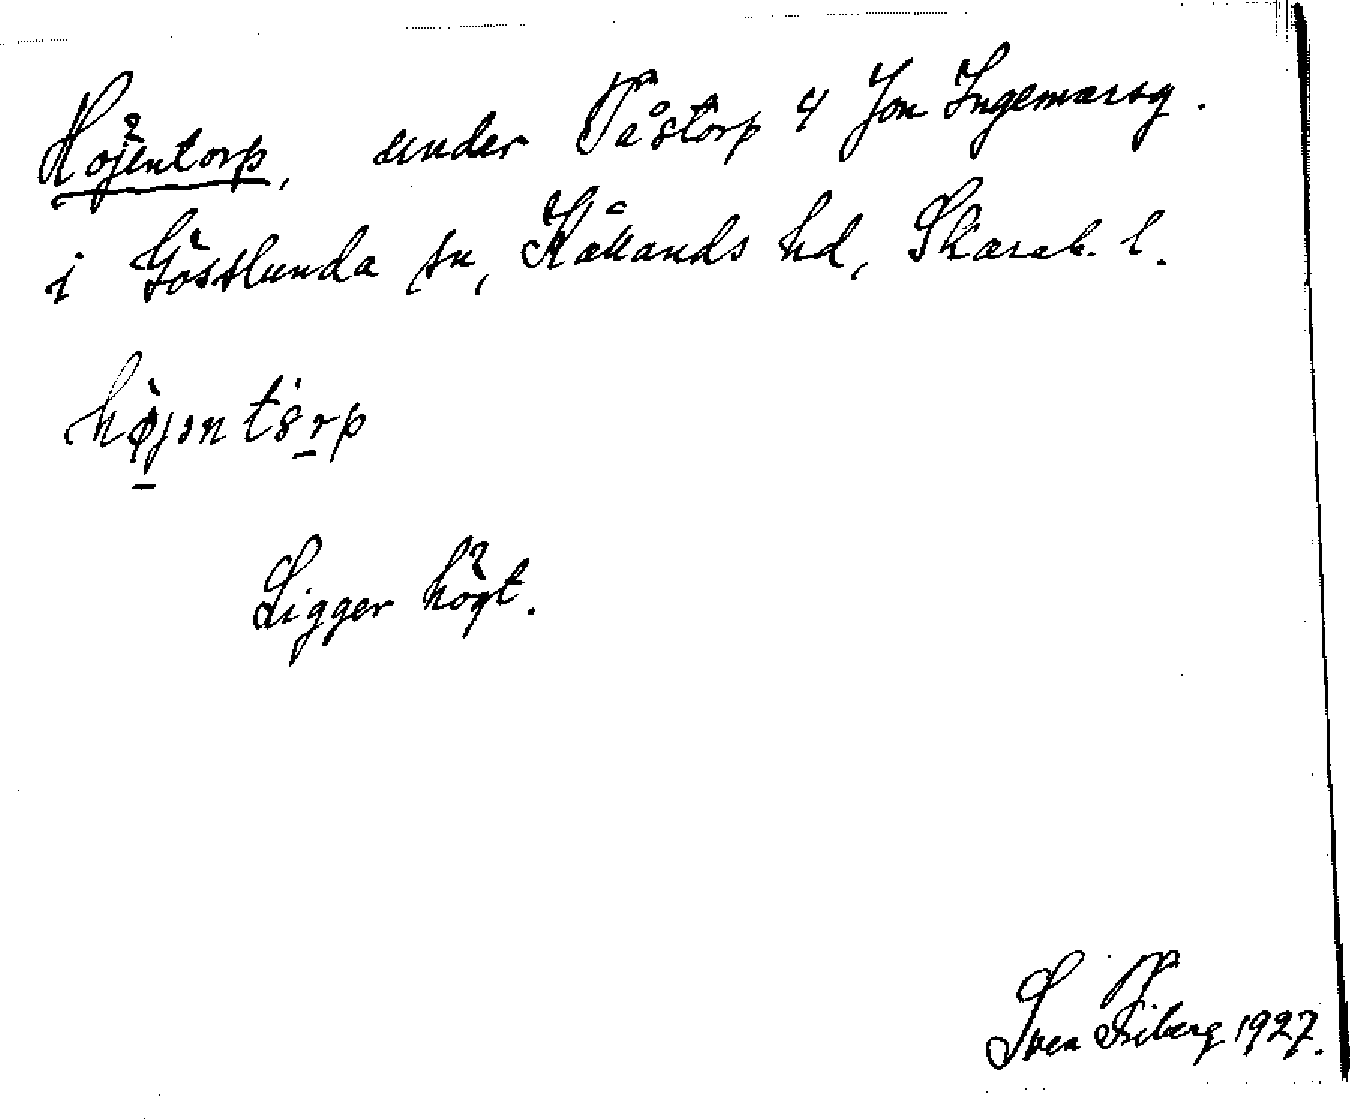 Höjentorp, under Påstorp 4 Jon Ingemarsg.
i Gösslunda sn, Kållands hd, Skarab. l.
Ligger högt.
Sven Friberg 1927.